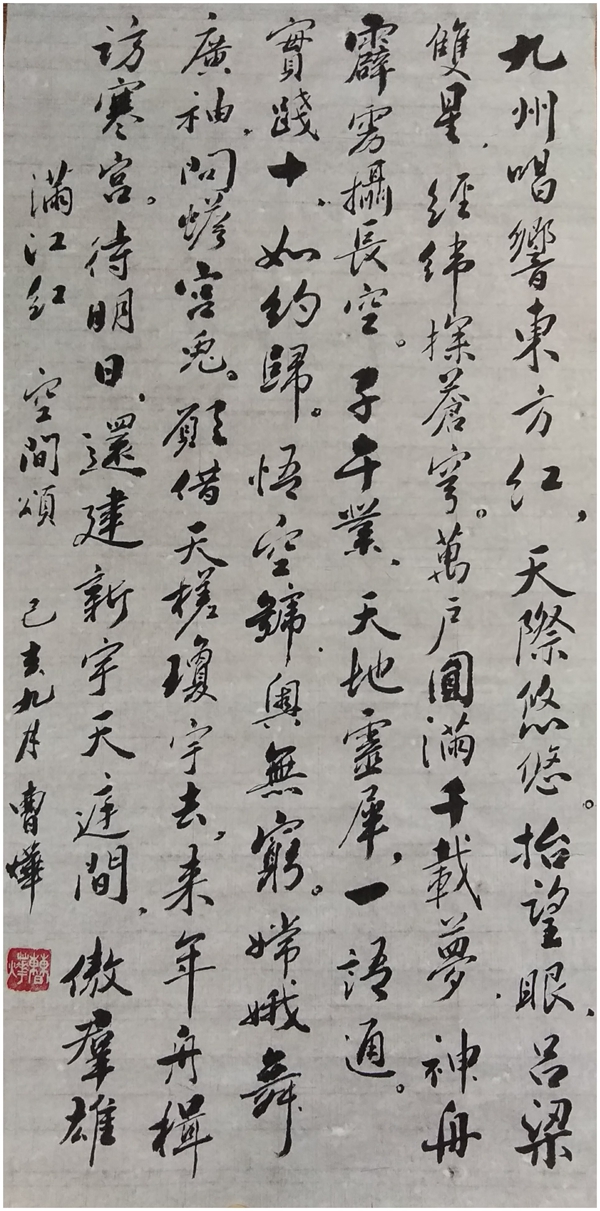 九州唱響東方紅，天際悠悠。抬望眼、呂梁
雙星，經緯探蒼穹。萬戶圓滿千載夢，神舟
霹靂攝長空。子午業、天地靈犀，一語通。
實踐十，如約歸。悟空歸，奧無窮。嫦娥舞
廣袖，問蟾宮兔。願借天槎瓊宇去，來年舟楫
訪寒宮。待明日、還建新宇天庭間，傲羣雄
滿江紅 空間頌 己亥九月 曹燁